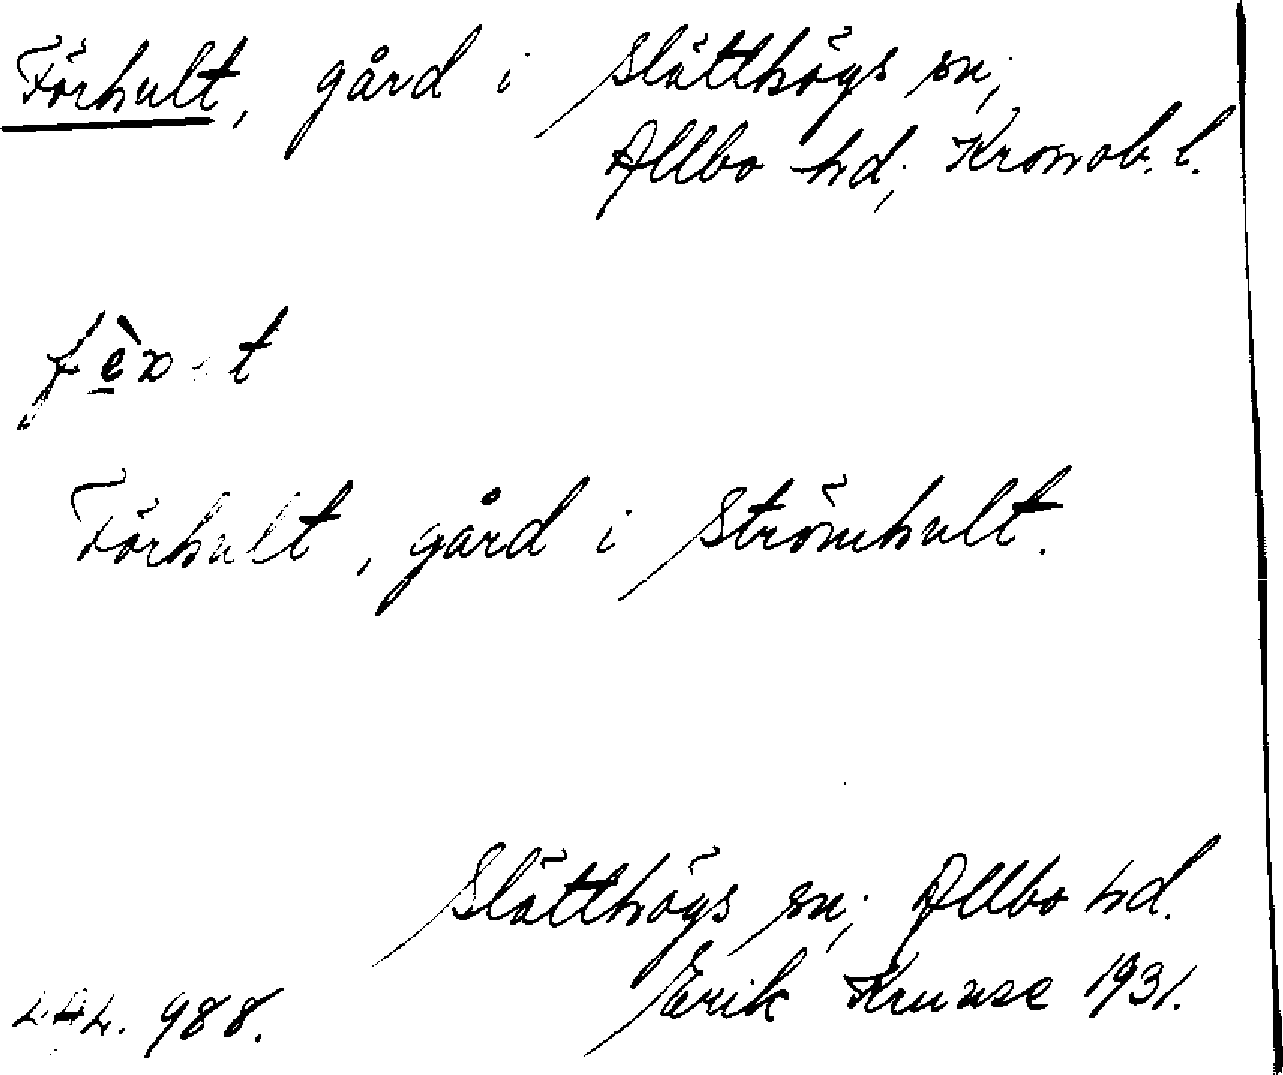 Förhult, gård i Slätthögs sn;
Allbo hd; Kronob. l.
Förhult, gård i Strömhult.
Slätthögs sn; Allbo hd.
Erik Kruuse 1931.
988.